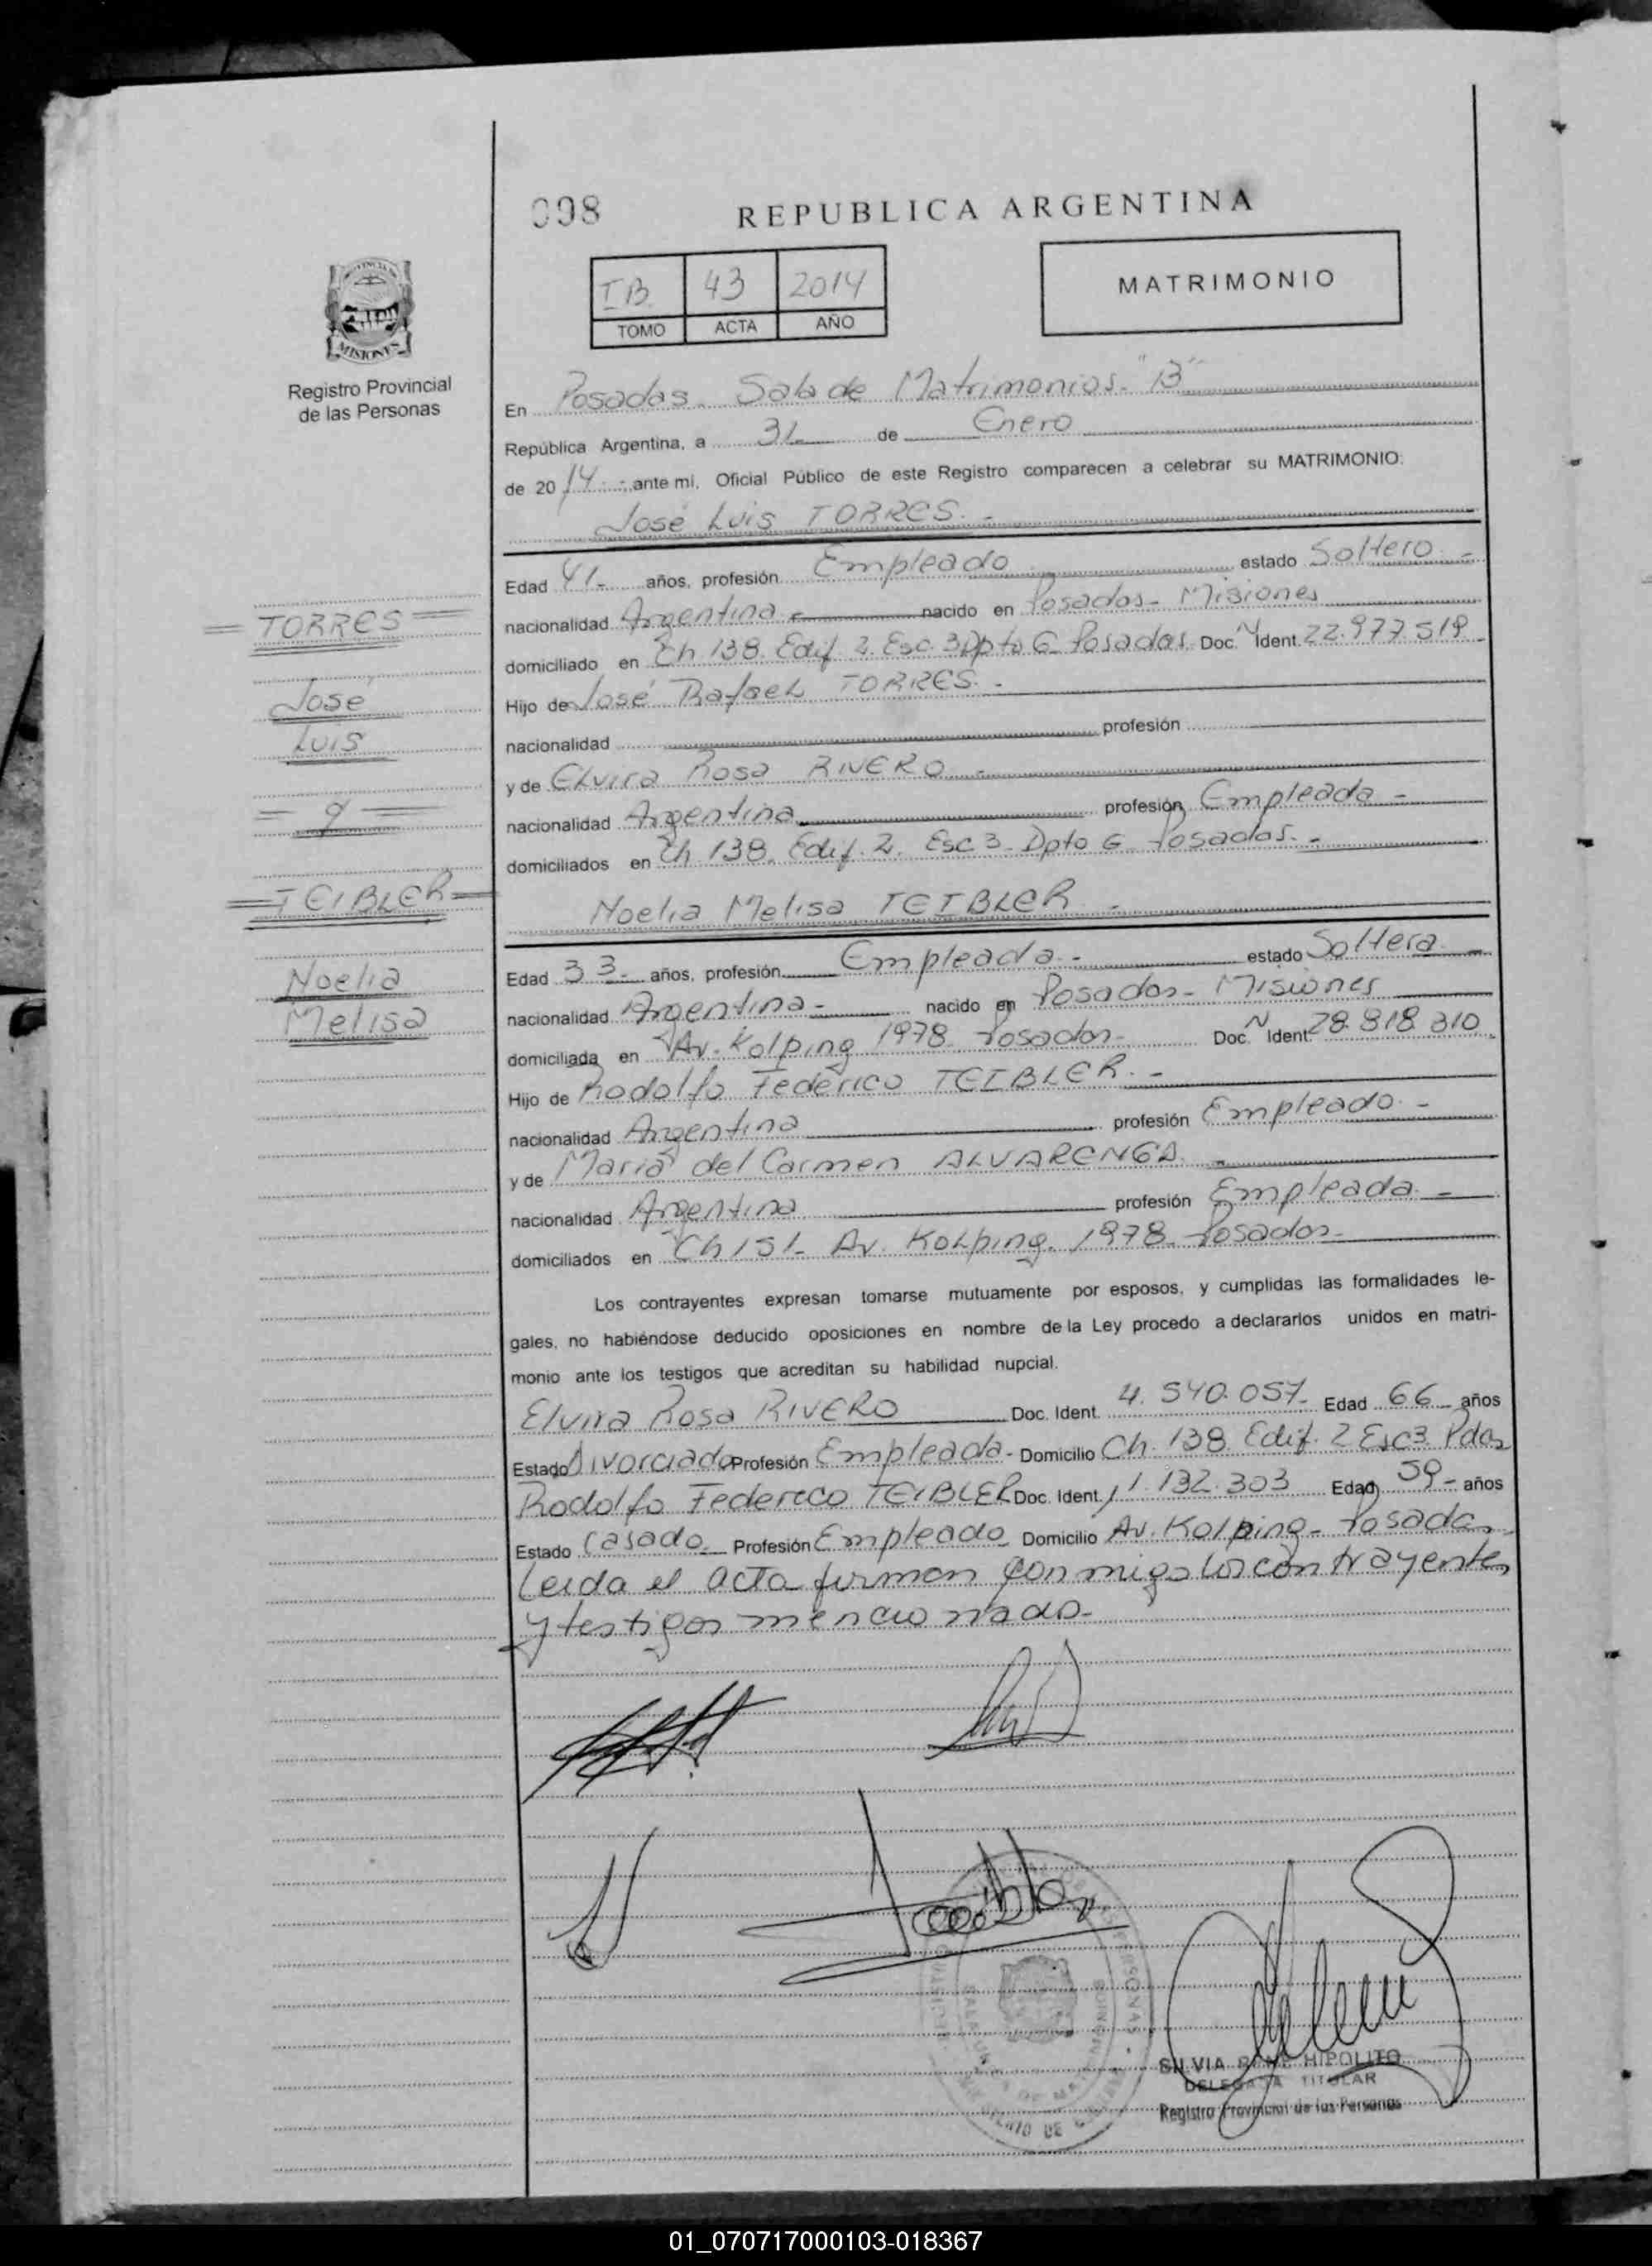 098
REPUBLICA ARGENTINA
PROVINCIA DE
MISIONES
Registro Provincial
de las Personas
IB 43 2014
TOMO ACTA AÑO
MATRIMONIO
En Posadas. Sala de Matrimonios. "B"
República Argentina, a 31 de Enero
de 2014.- ante mi, Oficial Público de este Registro comparecen a celebrar su MATRIMONIO:
José Luis TORRES.-
Edad 41- años, profesión Empleado estado Soltero.-
= TORRES =
nacionalidad Argentina.- nacido en Posadas- Misiones
domiciliado en Ch 138. Edif. 2. Esc. 3 Dpto G Posadas. Doc. N Ident. 22.977.519
José
Hijo de José Rafael TORRES.-
Luis
nacionalidad profesión
y de Elvira Rosa RIVERO.-
= y =
nacionalidad Argentina profesión Empleada-
domiciliados en Ch 138. Edif. 2. Esc 3- Dpto G Posadas.-
= TEIBLER =
Noelia Melisa TEIBLER.-
Edad 33- años, profesión Empleada.- estado Soltera.-
Noelia
nacionalidad Argentina- nacido en Posadas- Misiones
Melisa
domiciliada en Av. Kolping 1978 Posadas- Doc. N Ident. 28.818.310
Hijo de Rodolfo Federico TEIBLER.-
nacionalidad Argentina profesión Empleado.-
y de María del Carmen ALVARENGA.-
nacionalidad Argentina profesión Empleada.-
domiciliados en Ch 151- Av. Kolping. 1978- Posadas-
Los contrayentes expresan tomarse mutuamente por esposos, y cumplidas las formalidades le-
gales, no habiéndose deducido oposiciones en nombre de la Ley procedo a declararlos unidos en matri-
monio ante los testigos que acreditan su habilidad nupcial.
Elvira Rosa RIVERO Doc. Ident. 4.540.057- Edad 66 años
Estado Divorciada Profesión Empleada- Domicilio Ch. 138 Edif. 2 Esc 3 Pdas
Rodolfo Federico TEIBLER Doc. Ident. 11.132.303 Edad 59- años
Estado Casado Profesión Empleado Domicilio Av. Kolping- Posadas
Leida el acta firman conmigo los contrayentes
y testigos mencionados-
SILVIA HIPOLITO
DELEGADA TITULAR
Registro Provincial de las Personas
01_070717000103-018367